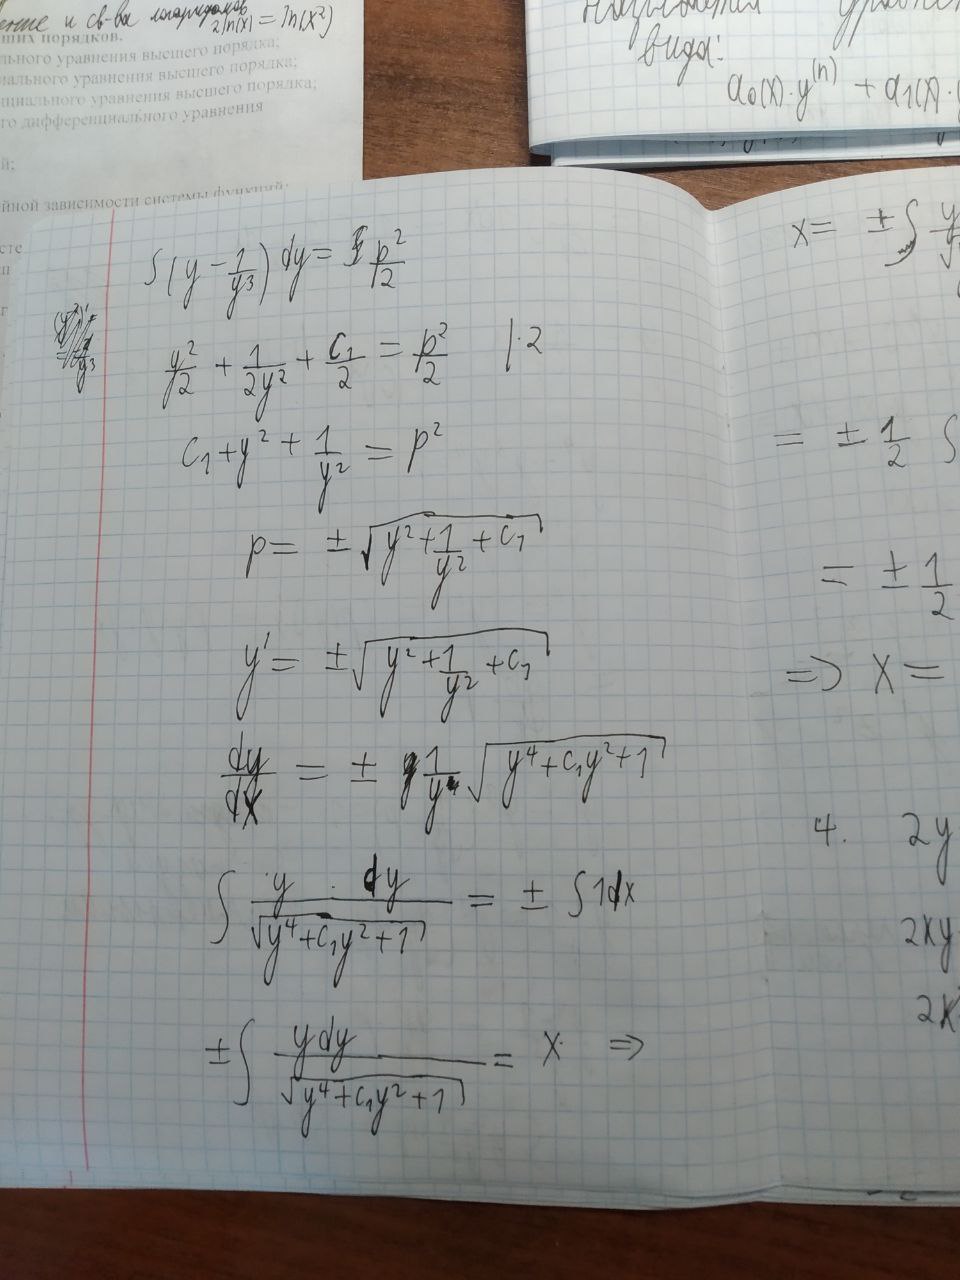 и св-ва логарифмов
2ln(x) = ln(x²)
ших порядков.
льного уравнения высшего порядка;
иального уравнения высшего порядка;
нциального уравнения высшего порядка;
го дифференциального уравнения
ой зависимости системы функций;
вида:
a₀(x)·y⁽ⁿ⁾ + a₁(x)·y
∫(y - 1/y³) dy = p²/2
y²/2 + 1/(2y²) + C₁/2 = p²/2 |·2
C₁ + y² + 1/y² = p²
p = ±√(y² + 1/y² + C₁)
y' = ±√(y² + 1/y² + C₁)
dy/dx = ± 1/y √(y⁴ + C₁y² + 1)
∫ y dy/√(y⁴ + C₁y² + 1) = ± ∫1dx
±∫ y dy/√(y⁴ + C₁y² + 1) = x ⇒
x = ±∫ y
= ± 1/2 ∫
= ± 1/2
=> x =
4. 2y
2xy
2x